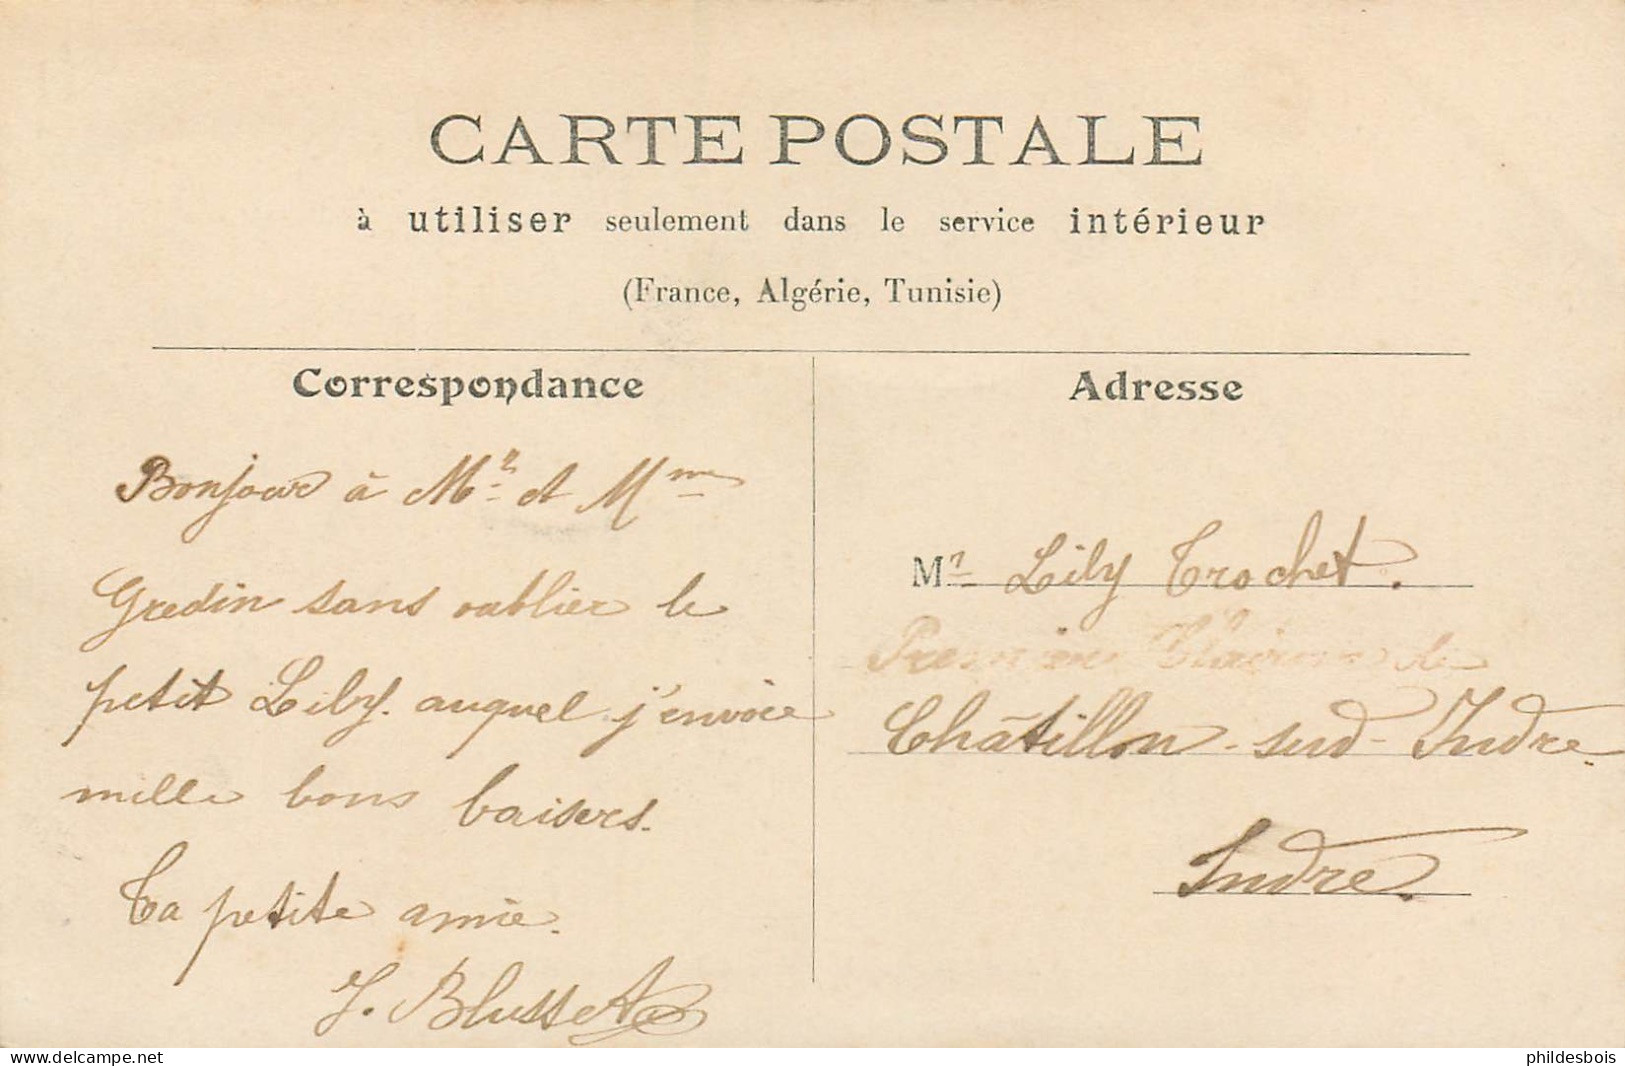 CARTE POSTALE
à utiliser seulement dans le service intérieur
(France, Algérie, Tunisie)
Correspondance
Bonjour à Mr et Mme
Gredin sans oublier le
petit Lily. auquel j'envoie
mille bons baisers.
Ta petite amie.
J. Blusset
Adresse
Mr Lily Trochet.
Premier de
Châtillon-sur-Indre.
Indre.
www.delcampe.net
phildesbois